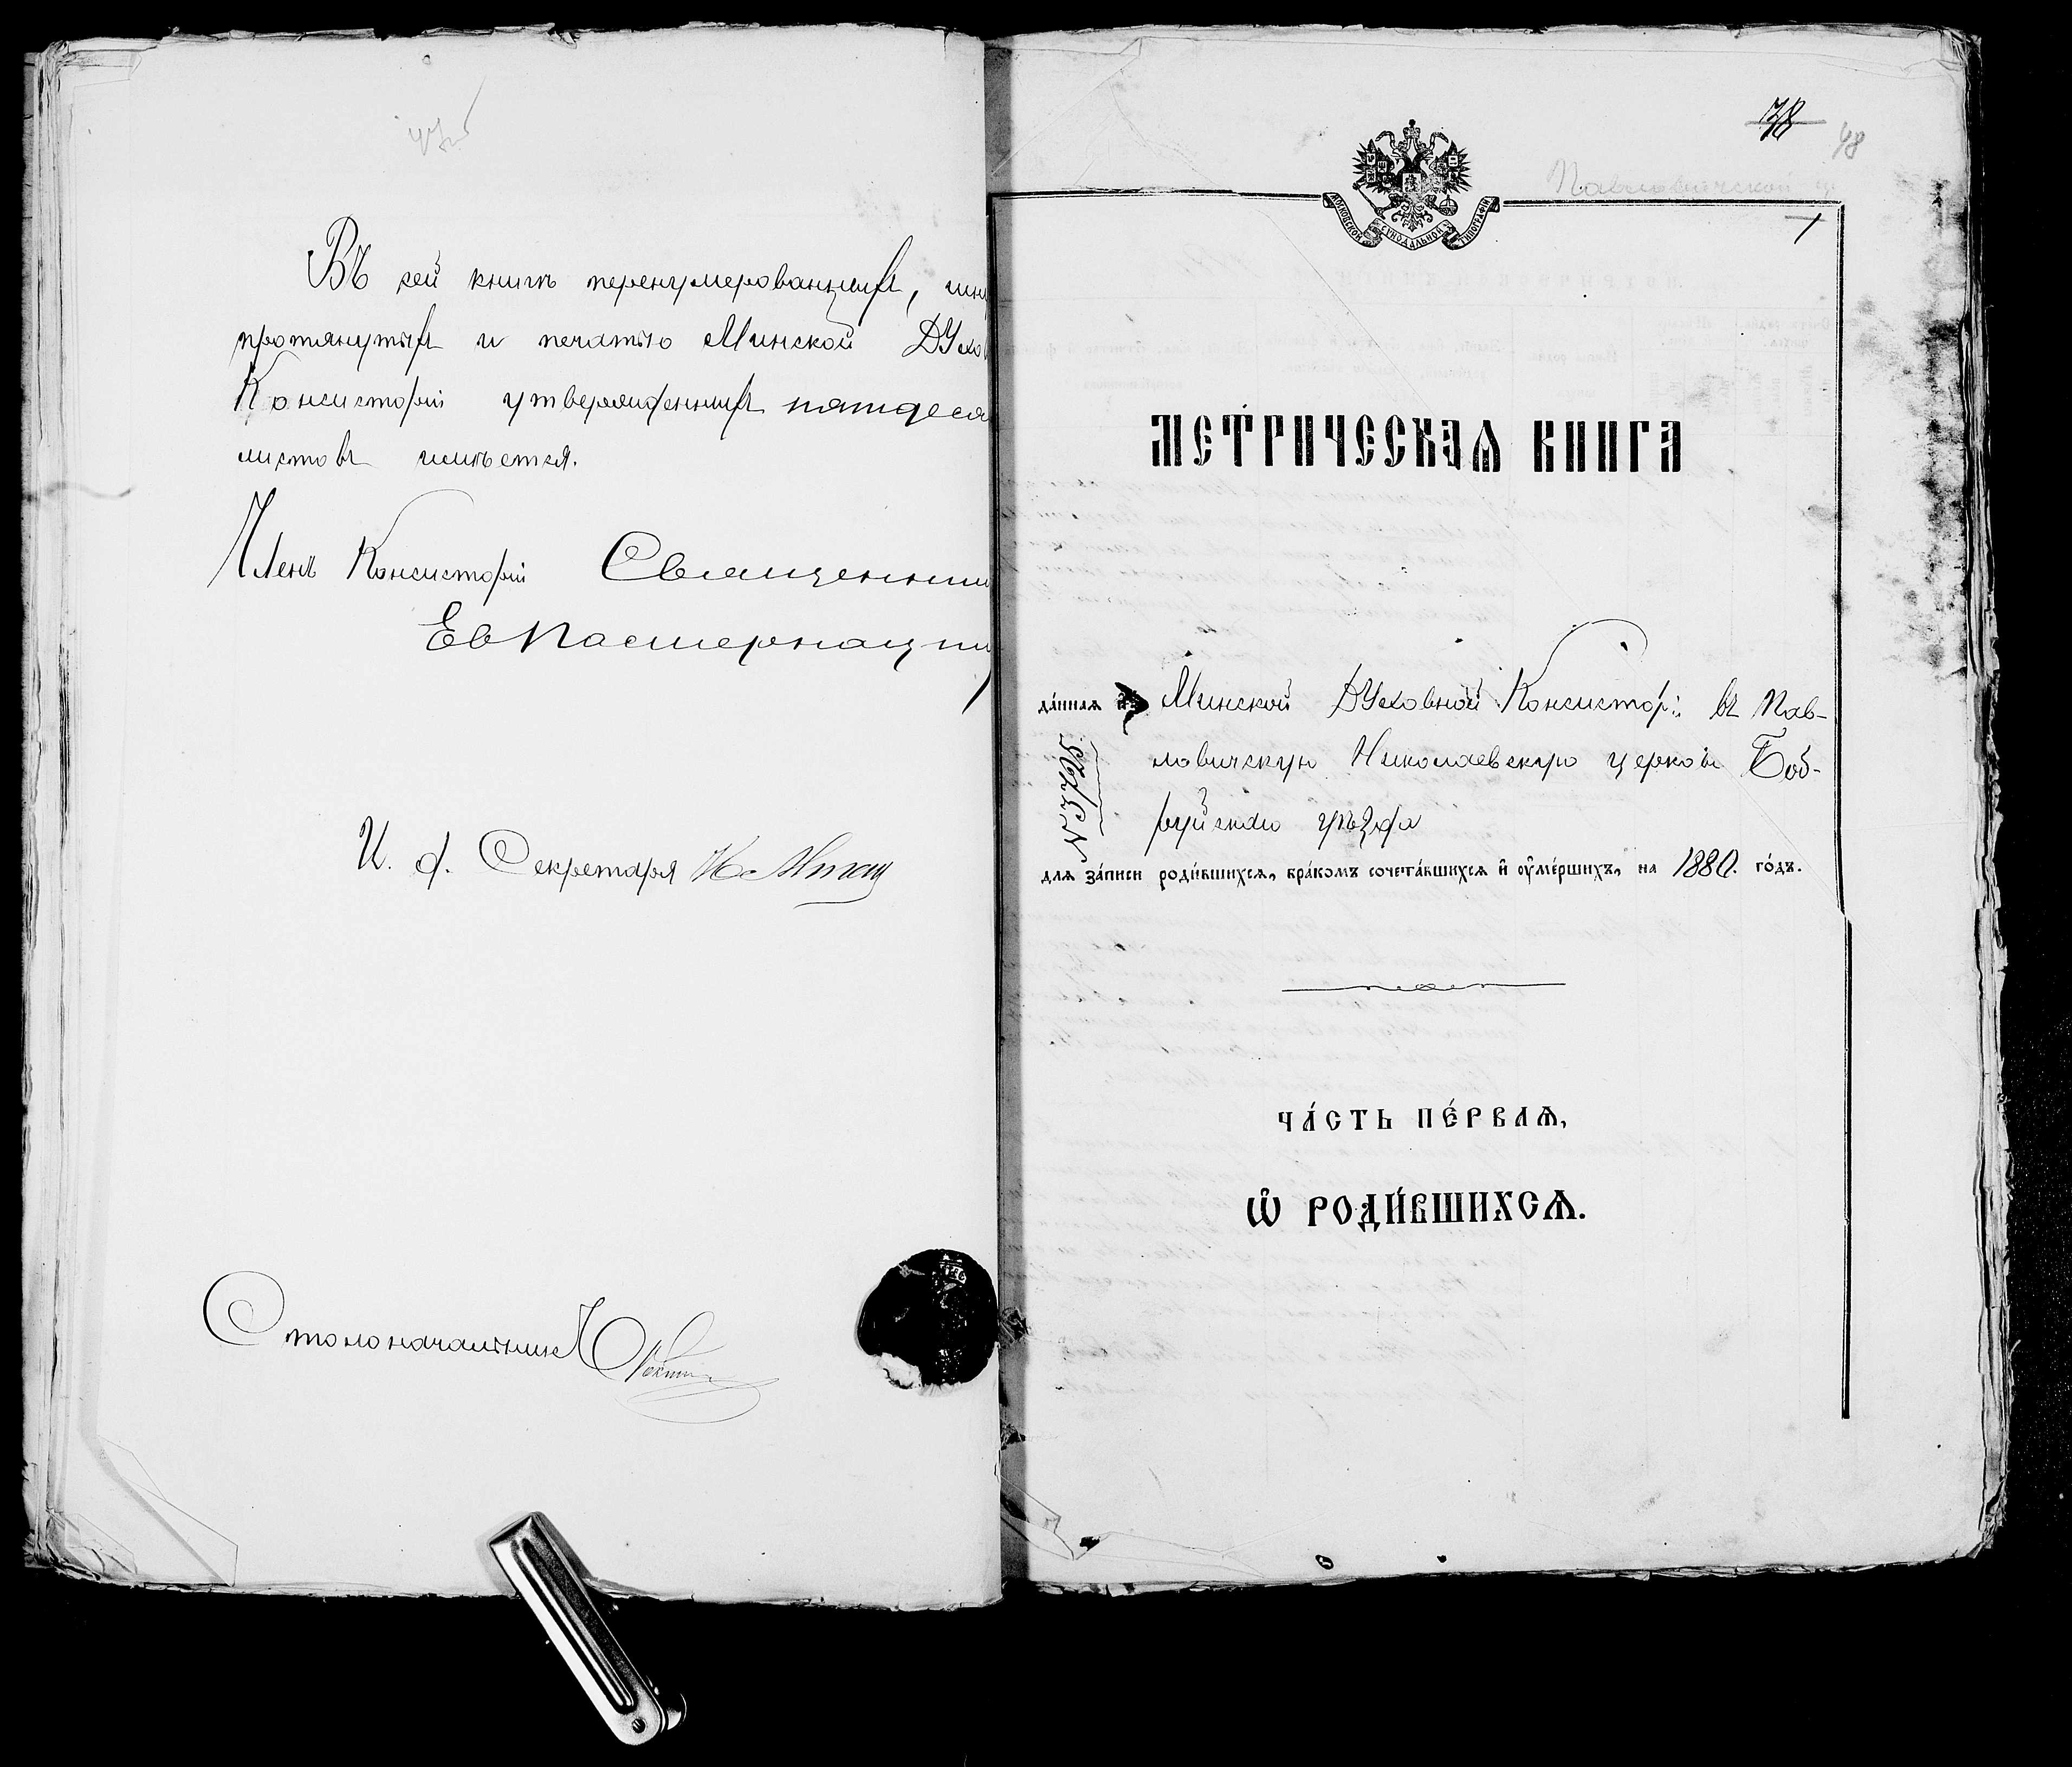 Въ сей книгѣ перенумерованныхъ, шну
протянутыхъ и печатью Минской Духов
Консисторіи утвержденныхъ пятдеся
листовъ имѣется.
Членъ Консисторіи Священни
И. д. Секретаря
Столоначальникъ
78
48
Павловичской ц
МОСКОВСКОЙ СѴНОДАЛЬНОЙ ТИПОГРАФІИ
1
МЕТРИЧЕСКАЯ КНИГА
да́нная изъ Минской Духовной Консисторіи въ Пав-
ловичскую Николаевскую церковь Боб-
руйскаго уѣзда
№ 3725
для за́писи роди́вшихсѧ, бра́комъ сочета́вшихсѧ и҆ ᲂу҆ме́ршихъ, на 1880. го́дъ.
ЧА́СТЬ ПЕ́РВАѦ,
Ѡ҆ РОДИ́ВШИХСѦ.